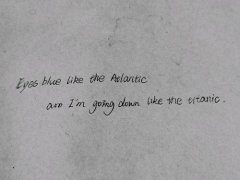 Eyes blue like the Atlantic
and I'm going down like the titanic.